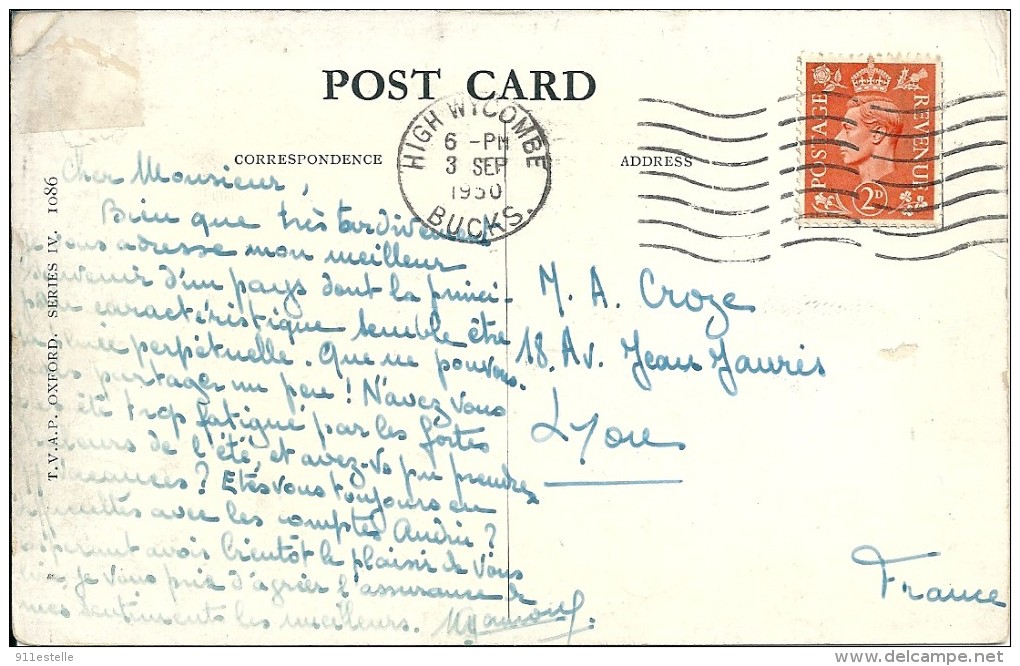 POST CARD
HIGH WYCOMBE
6 - PM
3 SEP
1950
BUCKS.
POSTAGE
REVENUE
2D
CORRESPONDENCE
ADDRESS
T.V.A.P. OXFORD. SERIES IV. 1086
Cher Monsieur,
Bien que très tardivement
je vous adresse mon meilleur
souvenir d'un pays dont la princi-
pale caractéristique semble être
la pluie perpétuelle. Que ne pouvons.
nous partager un peu ! N'avez vous
pas été trop fatigué par les fortes
chaleurs de l'été, et avez-vs pu prendre
vacances ? Etes vous toujours en
avec les comptes ?
Espérant avoir bientôt le plaisir de vous
lire, je vous prie d'agréer l'assurance de
mes sentiments les meilleurs.
M. A. Croze
18. Av. Jean Jaurès
Lyon
France
911estelle
www.delcampe.net